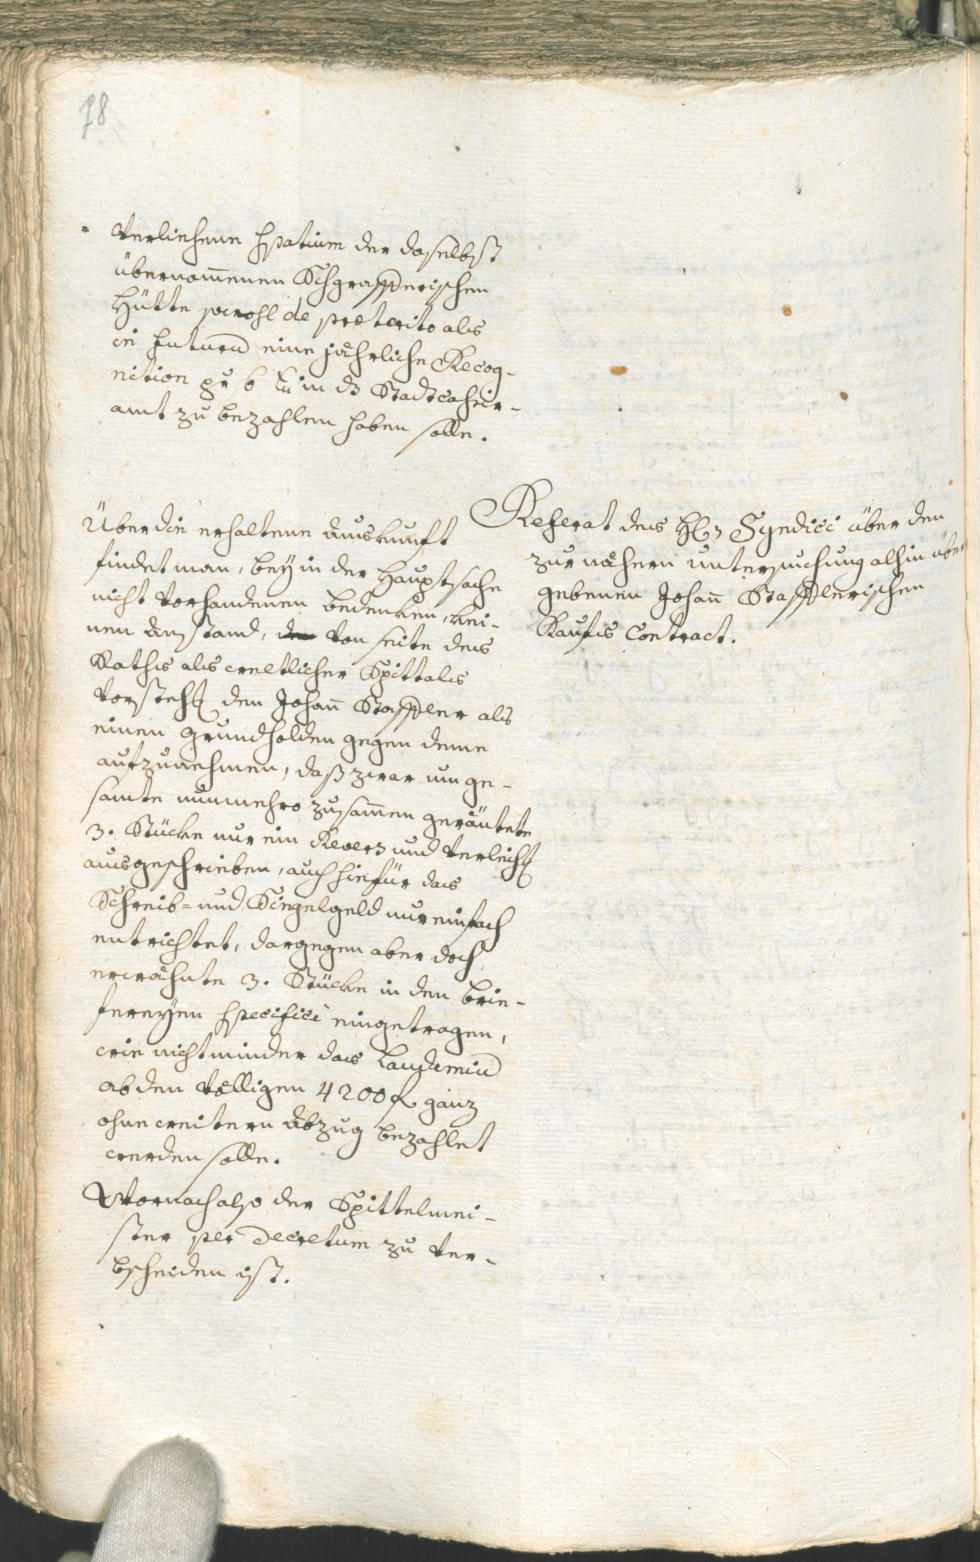 78
verliehene spatium der daselbst
übernom̄enen Schgrafferischen
Hütte sowohl de praeterito als
in futurū eine jährliche Recog-
nition pr 6 xr in dz Stadtcahsier-
amt zu bezahlen haben solle.
Referat des H: Syndici über den
zur nähern untersuchung alhin über
gebenen Johan̄ Stafflerischen
Kaufs Contract.
Über die erhaltene auskunft
findet man, beÿ in der Hauptsache
nicht vorhandenen bedenken, kei-
nen Anstand, von seite des
Raths als weltlicher Spittals
Vorsteh den Johan̄ Staffler als
einen grundholden gegen deme
aufzunehmen, daß zwar um ge-
samte nunmehro zusam̄en geräutete
3. Stücke nur ein Revers und verleich
ausgeschrieben, auch hiefür das
Schreib- und Singelgeld nur einfach
entrichtet, dargegen aber doch
erwähnte 3. Stücke in den brie-
fereÿen specifice eingetragen,
wie nicht minder das Laudemiū
ab den völligen 4200 f ganz
ohne weitern abzug bezahlet
werden solle.
Wornach also der Spittelmei-
ster per Decretum zu ver-
bscheiden ist.